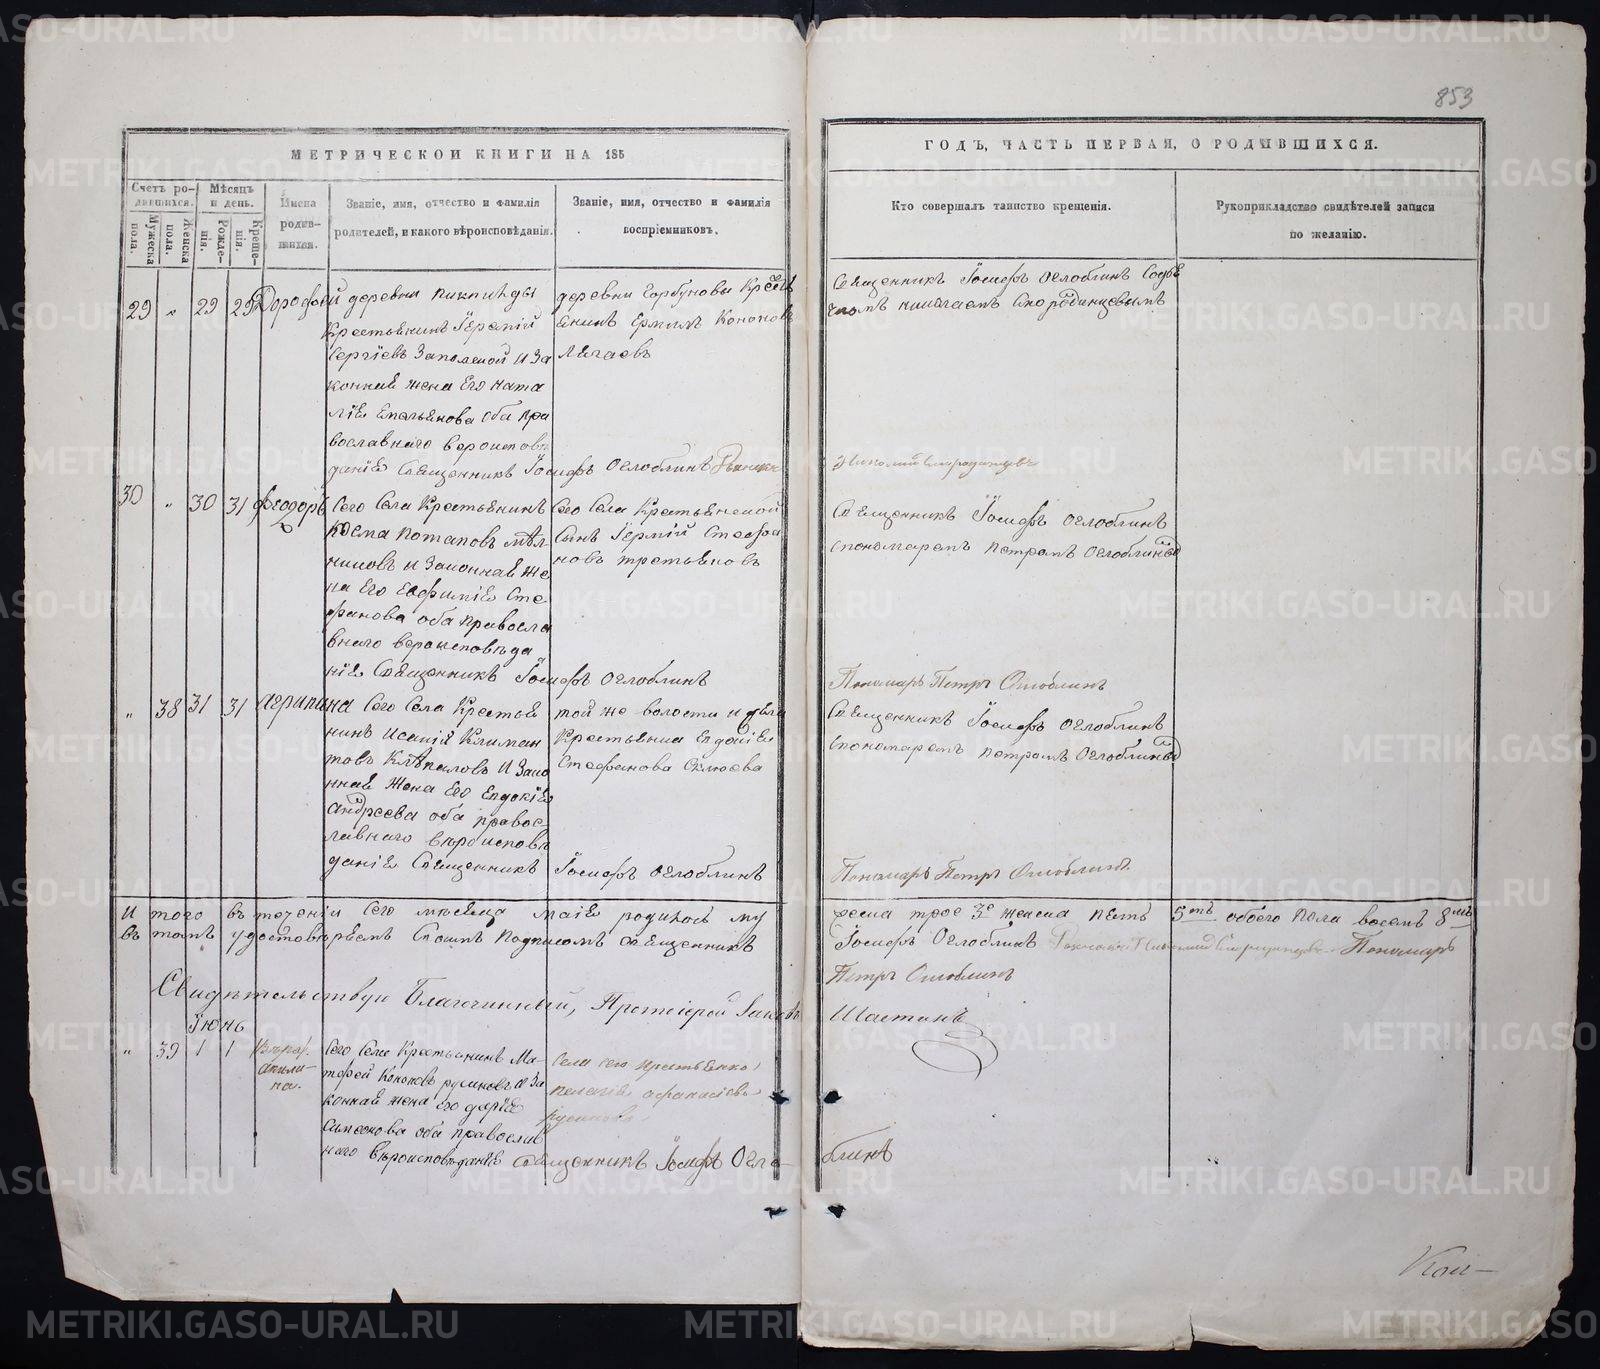 853
МЕТРИЧЕСКОЙ КНИГИ НА 185
ГОДЪ, ЧАСТЬ ПЕРВАЯ, О РОДИВШИХСЯ.
Счетъ ро-
дившихся.
Мужеска
пола.
Женска
пола.
Мѣсяцъ
и день.
Рожде-
нія.
Креще-
нія.
Имена
родив-
шихся.
Званіе, имя, отчество и фамилія
родителей, и какого вѣроисповѣданія.
Званіе, имя, отчество и фамилія
воспріемниковъ.
Кто совершалъ таинство крещенія.
Рукоприкладство свидѣтелей записи
по желанію.
29 " 29 29 Дорофей
деревни пикпинды
Крестьянинъ Іеремій
Сергіевъ Заполской И За
конная жена Его ната
лія Емельянова оба пра
вославнаго вероисповѣ
данія Священникъ Іосифъ Оглоблинъ
деревни Горбуновы Крестья
янинъ Ермилъ Кононовъ
Лягаевъ
Священникъ Іосифъ Оглоблинъ Содья
чкомъ николаемъ
30 " 30 31 Феодоръ
Сего Села Крестьянинъ
Козма Потаповъ мѣл
никовъ И Законная же
на Его Евфимія Сте
фанова оба Правосла
внаго вероисповѣда
нія Священникъ Іосифъ Оглоблинъ
Сего Села Крестьянской
Сынъ Іермій Стефа
новъ третьяковъ
Священникъ Іосифъ Оглоблинъ
Спономаремъ Петромъ Оглоблинымъ
Пономарь Петръ Оглоблинъ
" 38 31 31 Агрипина
Сего Села Крестья
нинъ Исакій Климан
товъ Клѣпаловъ И Зако
нная Жена Его Евдокія
Андреева оба правос
лавнаго вѣроисповѣ
данія Священникъ Іосифъ Оглоблинъ
той же волости и села
Крестьянка Евдокія
Стефанова Склюева
Священникъ Іосифъ Оглоблинъ
Спономаремъ Петромъ Оглоблинымъ
Пономарь Петръ Оглоблинъ
И того въ теченіи Сего мѣсяца Маія родилось му
жеска трое 3е женска пять 5ть обоего Пола восемь 8мь
въ томъ удостовѣряемъ Споимъ Подписомъ священникъ
Іосифъ Оглоблинъ Пономарь
Петръ Оглоблинъ
Свидѣтельствуи Благочинный, Протоіерей Іаковъ
Шастинъ
Іюнь
" 39 1 1
Акили-
на.
Сего Села Крестьянинъ Ма-
тфей Кононовъ русиновъ И За
конная жена Его дарія
Симеонова оба православ
наго вѣроисповѣданія Священникъ Іосифъ Огло-
блинъ
Села сего крестьянка
пелагія афанасіева
Русинова
Кол-
METRIKI.GASO-URAL.RU